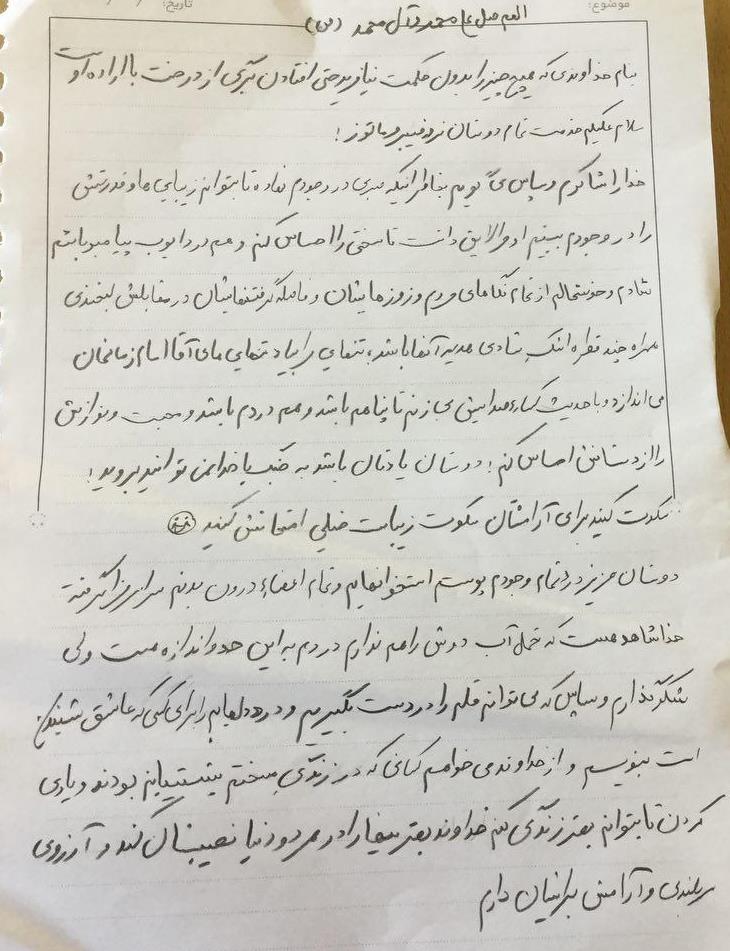 موضوع:
تاریخ:
اللهم صل علی محمد و آل محمد (ص)
بنام خداوندی که هیچ چیز را بدون حکمت نیافرید حتی افتادن برگی از درخت با اراده اوست
سلام علیکم خدمت تمام دوستان
خدا را شاکرم و سپاس می گویم بخاطر اینکه صبری در وجودم نهاده تا بتوانم زیبایی ها و قدرتش
را در وجودم ببینم او مرا لایق دانست تا سختی را احساس کنم و هم درد ایوب پیامبر باشم
شادم و خوشحالم از تمام نگاهای مردم و زوزه هایشان و فاصله گرفتنهایشان در مقابلش لبخندی
همراه چند قطره اشک شادی هدیه آنها باشد، تنهایی مرا بیاد تنهایی های آقا امام زمانمان
می اندازد و با حدیث کساء صدایش می زنم تا پناهم باشد و هم دردم باشد و محبت و نوازش
را از دستانش احساس کنم! دوستان یادتان باشد به جنگ با خدا نمی توانید بروید!
سکوت کنید برای آرامشتان سکوت زیباست خیلی امتحانش کنید
دوستان عزیز درد تمام وجودم پوست استخوانهایم و تمام اعضاء درون بدنم را فرا گرفته
خدا شاهد هست که تحمل آب دوش را هم ندارم دردم به این حد و اندازه هست ولی
شکرگذارم و سپاس که می توانم قلم را در دست بگیرم و درد دلهایم را برای کسی که عاشق شنیدن
است بنویسم و از خداوند می خواهم کسانی که در زندگی سختم پشتیبانم بودند و یاری
کردن تا بتوانم بهتر زندگی کنم خداوند بهترینها را در هر دو دنیا نصیبشان کند و آرزوی
سربلندی و آرامش برایشان دارم